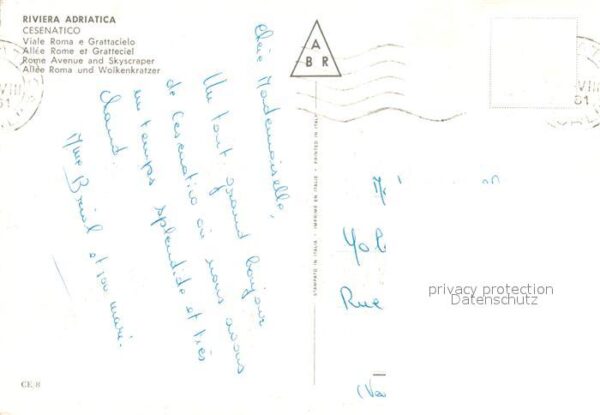 RIVIERA ADRIATICA
CESENATICO
Viale Roma e Grattacielo
Allée Rome et Gratteciel
Rome Avenue and Skyscraper
Allée Roma und Wolkenkratzer
A
B R
VIII
61
Chère Mademoiselle,
Un tout grand bonjour
de Cesenatico où nous avons
un temps splendide et très
chaud.
Mme et son mari.
STAMPATO IN ITALIA - IMPRIMÉ EN ITALIE - PRINTED IN ITALY
Rue
privacy protection
Datenschutz
CE. 8